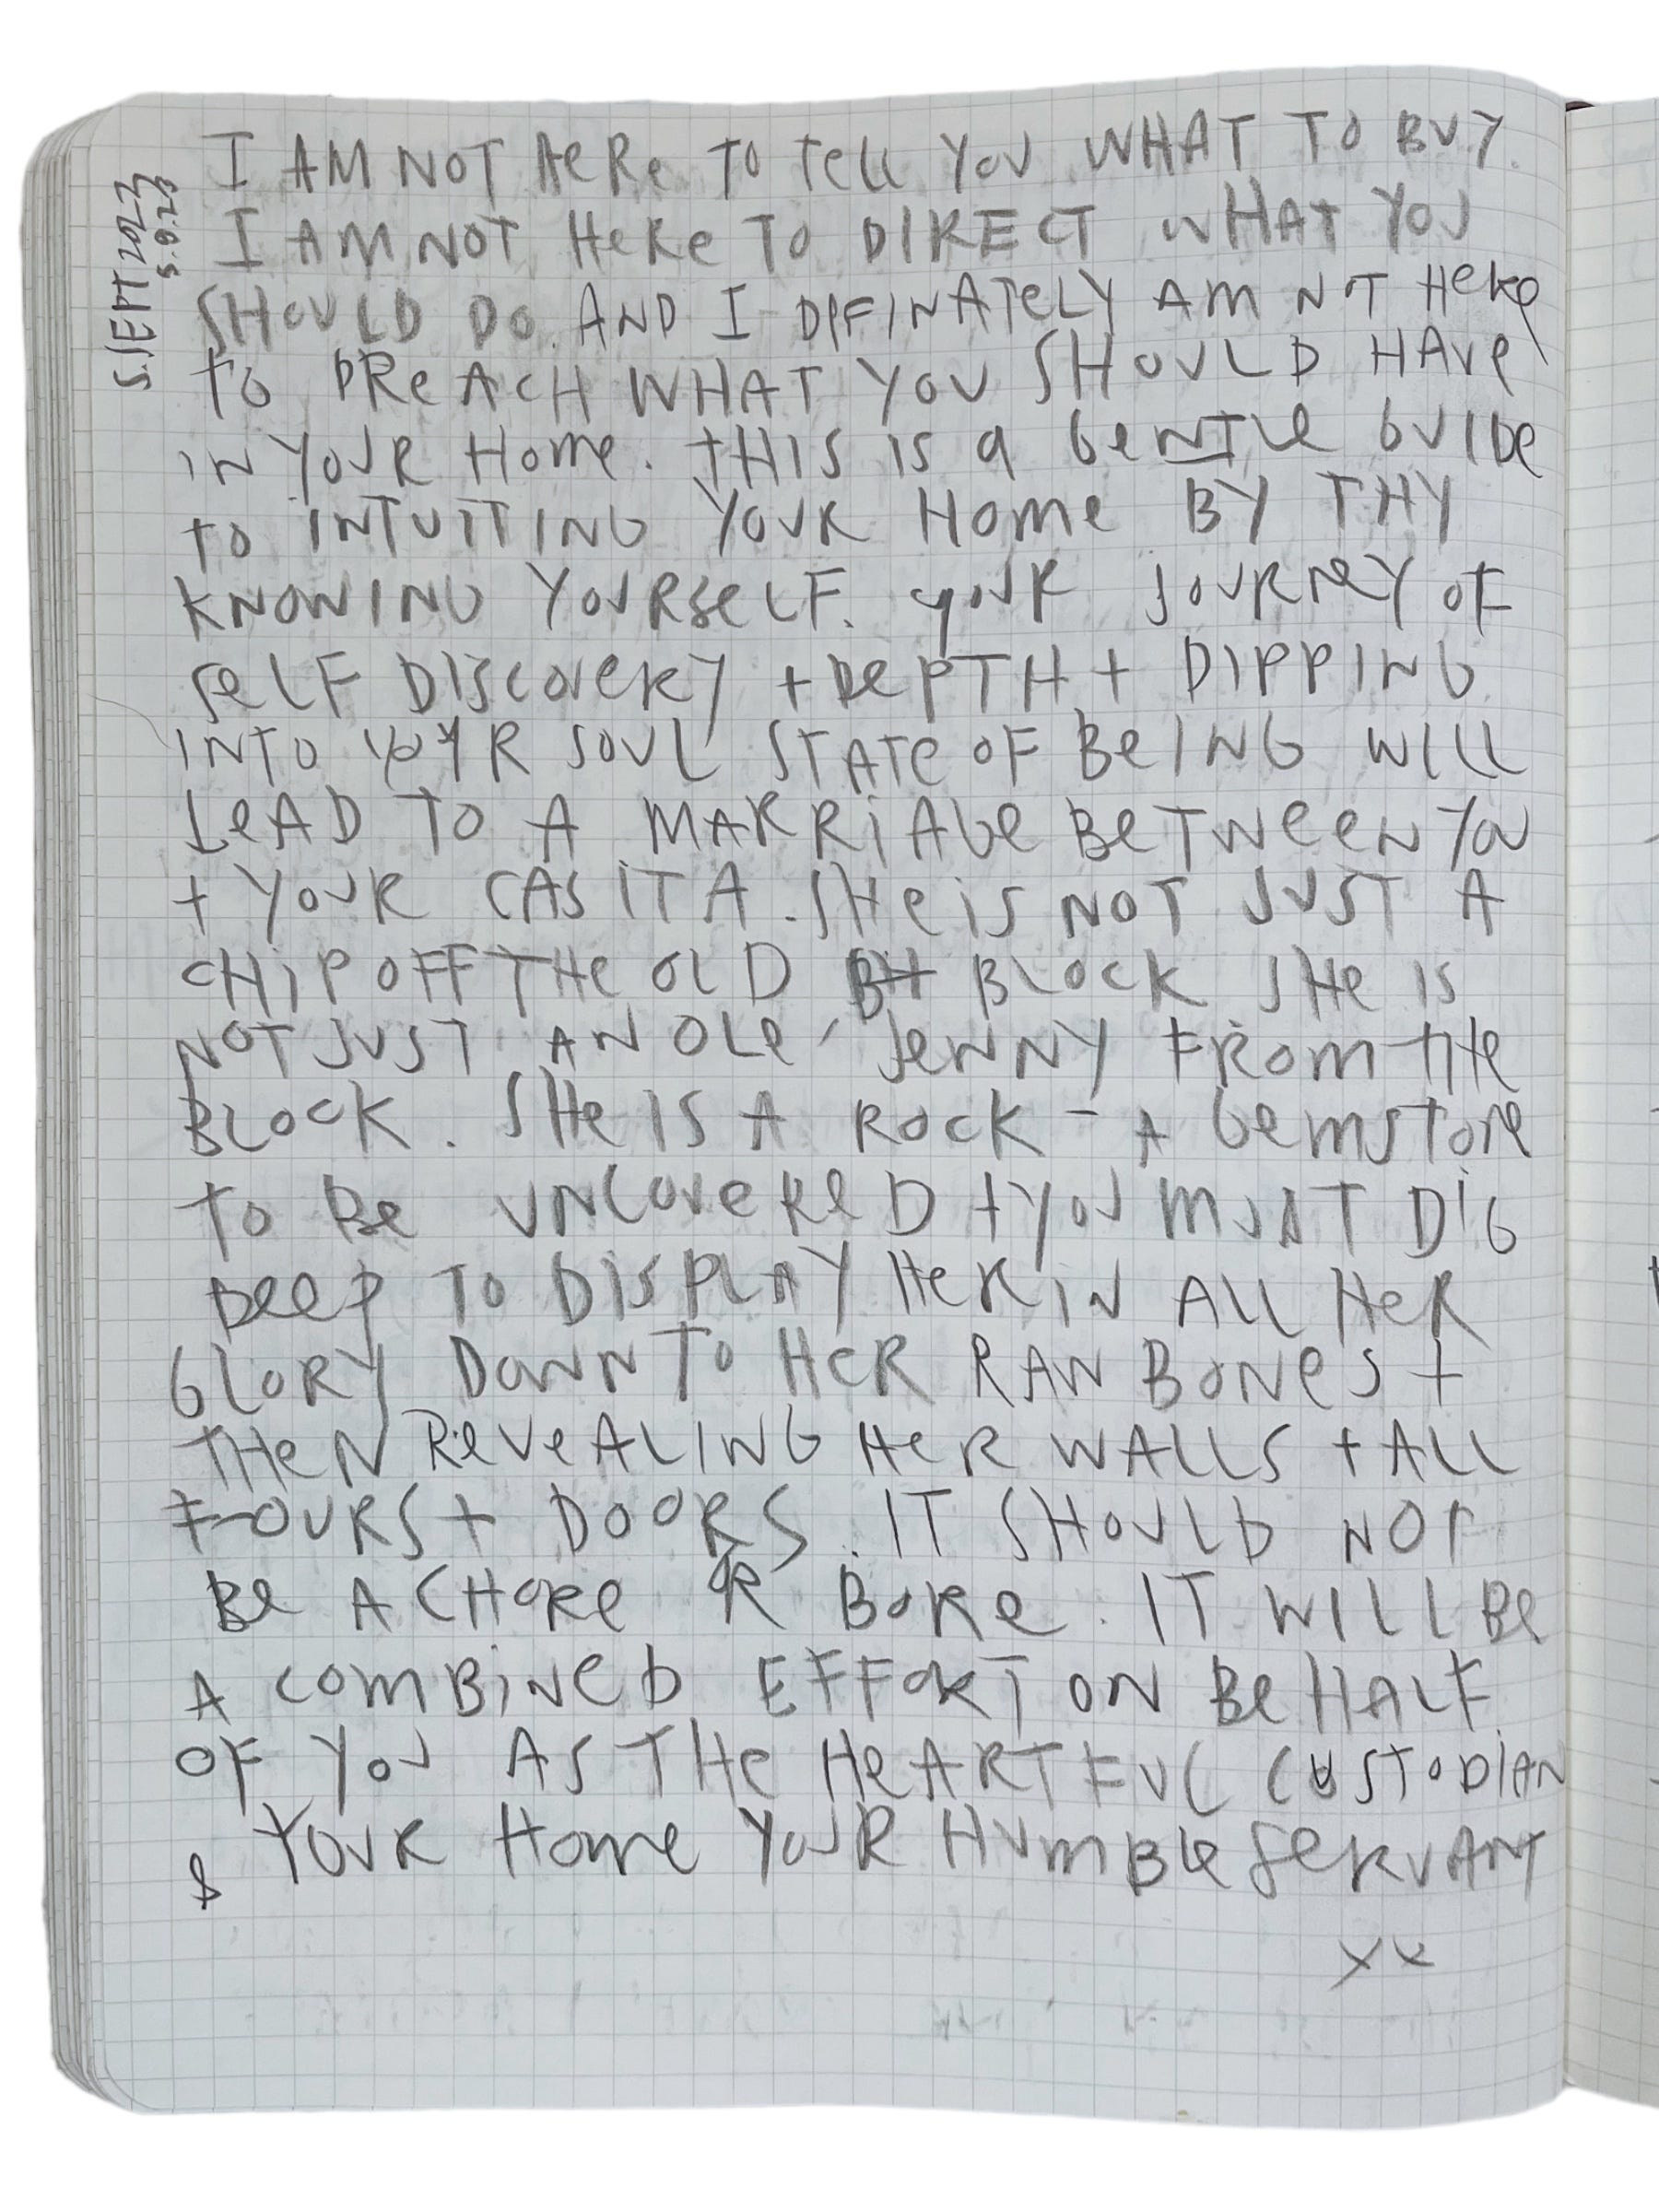 5.SEPT 2023
5.9.23
I AM NOT HERE TO TELL YOU WHAT TO BUY.
I AM NOT HERE TO DIRECT WHAT YOU
SHOULD DO. AND I DEFINATELY AM NT HERE
TO PREACH WHAT YOU SHOULD HAVE
IN YOUR HOME. THIS IS A GENTLE GUIDE
TO INTUITING YOUR HOME BY THY
KNOWING YOURSELF. YOUR JOURNEY OF
SELF DISCOVERY + DEPTH + DIPPING
INTO YOUR SOUL STATE OF BEING WILL
LEAD TO A MARRIAGE BETWEEN YOU
+ YOUR CASITA. SHE IS NOT JUST A
CHIP OFF THE OLD BLOCK. SHE IS
NOT JUST AN OLE' JENNY FROM THE
BLOCK. SHE IS A ROCK - A GEMSTONE
TO BE UNCOVERED + YOU MUST DIG
DEEP TO DISPLAY HER IN ALL HER
GLORY DOWN TO HER RAW BONES +
THEN REVEALING HER WALLS + ALL
FOURS + DOORS. IT SHOULD NOT
BE A CHORE OR BORE. IT WILL BE
A COMBINED EFFORT ON BEHALF
OF YOU AS THE HEARTFUL CUSTODIAN
& YOUR HOME YOUR HUMBLE SERVANT
xx